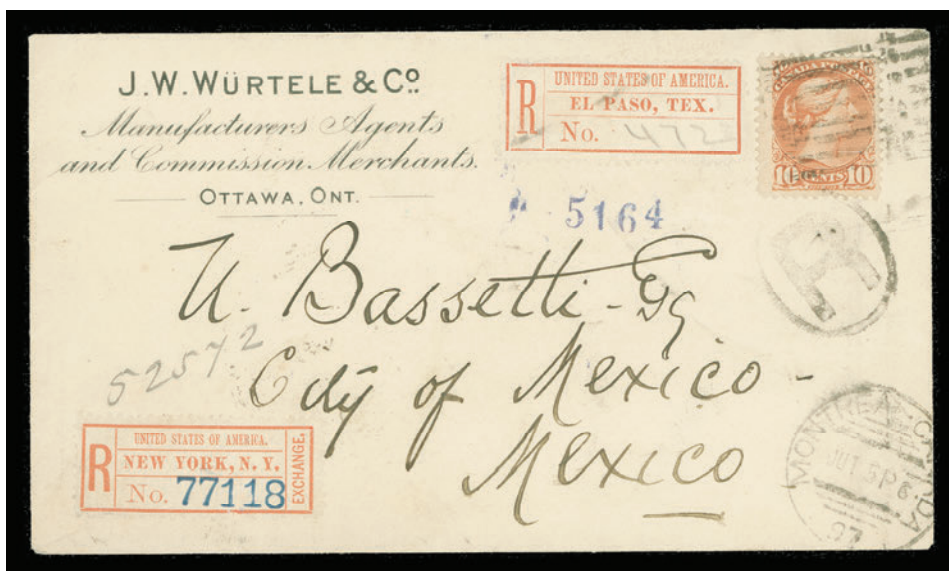 J.W. WÜRTELE & Cº.
Manufacturers Agents
and Commission Merchants.
OTTAWA, ONT.
R
UNITED STATES OF AMERICA.
EL PASO, TEX.
No. 472
CANADA POSTAGE
10 CENTS 10
5164
R
U. Bassetti - Esq
City of Mexico -
Mexico
52572
R
UNITED STATES OF AMERICA.
NEW YORK, N. Y.
No. 77118
EXCHANGE.
MONTREAL, CANADA
97